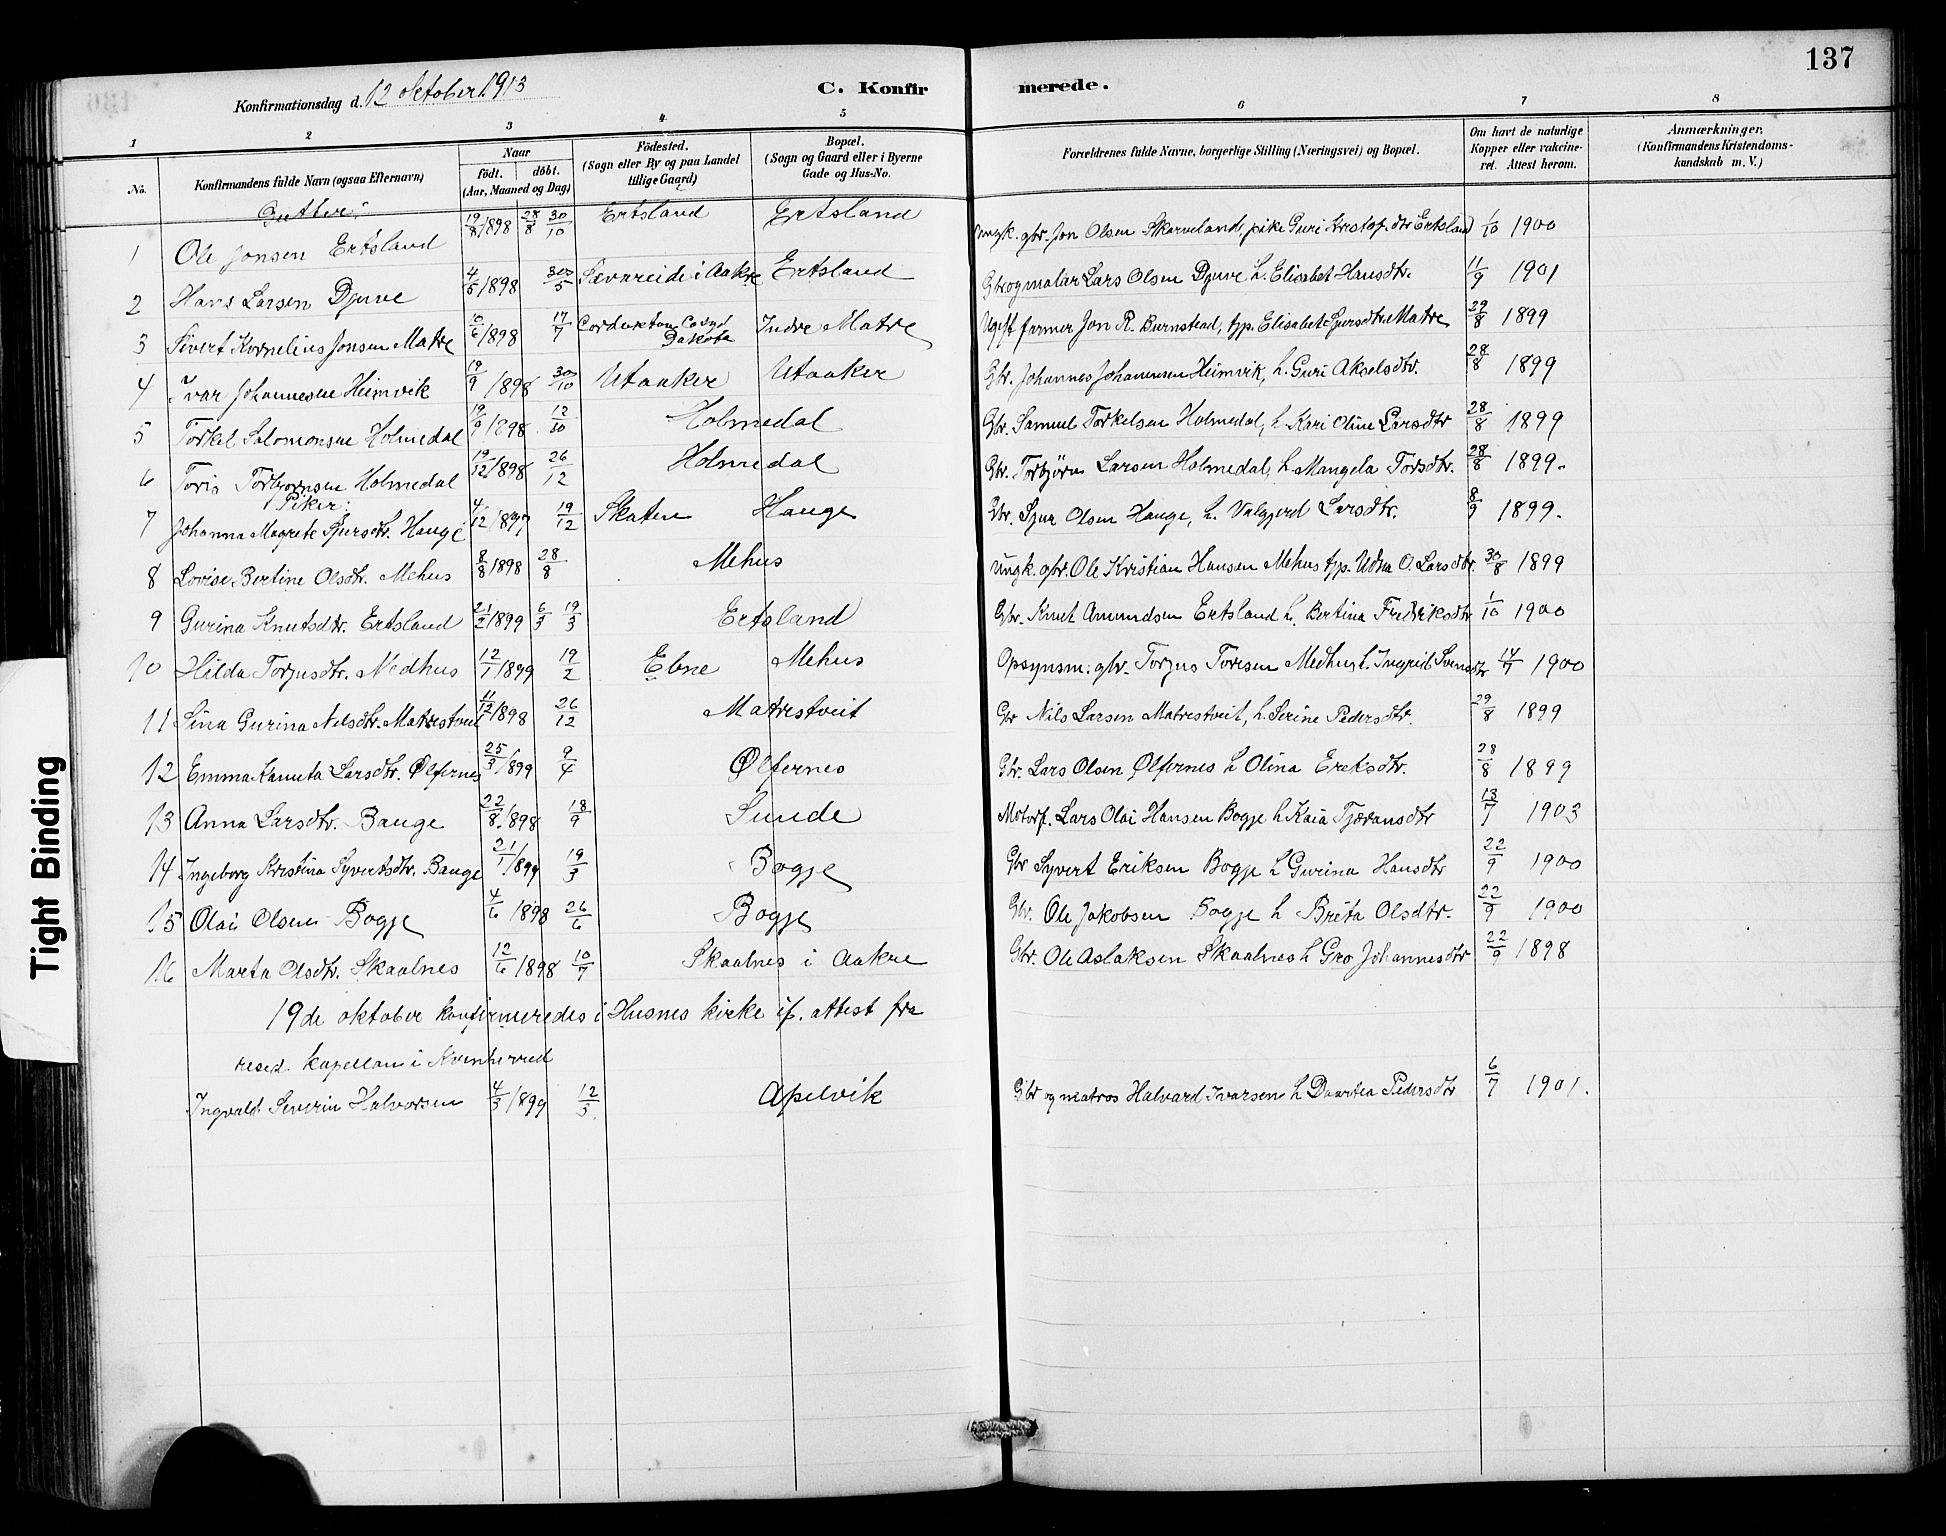 137
Konfirmationsdag d. 12 oktober 1913 C. Konfirmerede.
1 2 3 4 5 6 7 8
No. Konfirmandens fulde Navn (ogsaa Efternavn) Naar födt. döbt. (Aar, Maaned og Dag) Födested. (Sogn eller By og paa Landet tillige Gaard) Bopæl. (Sogn og Gaard eller i Byerne Gade og Hus-No. Forældrenes fulde Navne, borgerlige Stilling (Næringsvei) og Bopæl. Om havt de naturlige Kopper eller vakcineret. Attest herom. Anmærkninger. (Konfirmandens Kristendomskundskab m. V.)
Gutter:
1 Ole Jonsen Ertsland 19/8 1898 28/8 30/10 Ertsland Ertsland Ungk. gbr. Jon Olsen Skarveland, pike Guri Kristof.dtr Ertsland 1/10 1900
2 Hans Larsen Djuve 4/5 1898 30/5 Sævareide i Aakre Ertsland Gbr og malar Lars Olsen Djuve h. Elisabet Hansdtr. 11/9 1901
3 Sivert Kornelius Jonsen Matre 10/6 1898 17/7 Dakota Indre Matre Ugift farmer Jon R. Burnstead, tjp. Elisabet Sjursdtr. Matre 29/8 1899
4 Ivar Johannesen Heimvik 19/9 1898 30/10 Utaaker Utaaker Gbr. Johannes Johannesen Heimvik, h. Guri Akselsdtr. 28/8 1899
5 Torkel Salomonsen Holmedal 19/9 1898 12/10 Holmedal Gbr. Samuel Torkelsen Holmedal, h. Kari Oline Larsdtr 28/8 1899
6 Toris Torbjornsen Holmedal 19/12 1898 26/12 Holmedal Gbr. Torbjørn Larsen Holmedal, h. Mangela Torsdtr. 28/8 1899.
Piker:
7 Johanna Magrete Sjursdtr. Hauge 4/12 1897 19/12 Skaten Hauge Gbr. Sjur Olsen Hauge, h. Valgjerd Larsdtr. 8/9 1899.
8 Lovise Bertine Olsdtr. Mehus 8/8 1898 28/8 Mehus Ungk. gbr. Ole Kristian Hansen Mehus tjp. Udna O. Larsdtr. 30/8 1899
9 Gurina Knutsdtr. Ertsland 21/2 1899 6/3 19/3 Ertsland Gbr. Knut Amundsen Ertsland h. Bertina Fredriksdtr 1/10 1900
10 Hilda Torjusdtr. Nedhus 12/1 1899 19/2 Ebne Mehus Opsynsm. gbr. Torjus Torisen Medhus h. Ingrid Svensdtr 14/7 1900
11 Sina Gurina Nelsdtr. Matrestveit 11/12 1898 26/12 Matrestveit Gbr Nils Larsen Matrestveit, h. Serine Pedersdtr. 29/8 1899
12 Emma Kaneta Larsdtr. Ølfernes 25/3 1899 9/4 Ølfernes Gbr. Lars Olsen Ølfernes h Olina Ereksdtr. 28/8 1899
13 Anna Larsdtr. Bauge 22/8 1898 18/9 Sunde Motorf. Lars Olai Hansen Bogje h Kaia Tjæransdtr 13/7 1903
14 Ingeborg Kristina Syvertsdtr. Bauge 21/1 1899 19/3 Bogje Gbr Syvert Eriksen Bogje h Gurina Hansdtr 22/9 1900
15 Olai Olsen Bogje 4/6 1898 26/6 Bogje Gbr. Ole Jakobsen Bogje h Brita Olsdtr. 22/9 1900
16 Marta Olsdtr. Skaalnes 12/6 1898 10/7 Skaalnes i Aakre Gbr. Ole Aslaksen Skaalnes h Gro Johannesdtr 22/9 1898
19de oktober konfirmeredes i Husnes kirke if. attest fra
resid. kapellan i Kvinherred
Ingvald Severin Halvorsen 4/3 1899 12/3 Apelvik Gbr og matros Halvard Ivarsen h Daartea Pedersdtr 6/7 1901.
Tight Binding